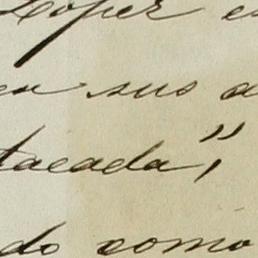 Lopez e
en sus a
tacada",
do como